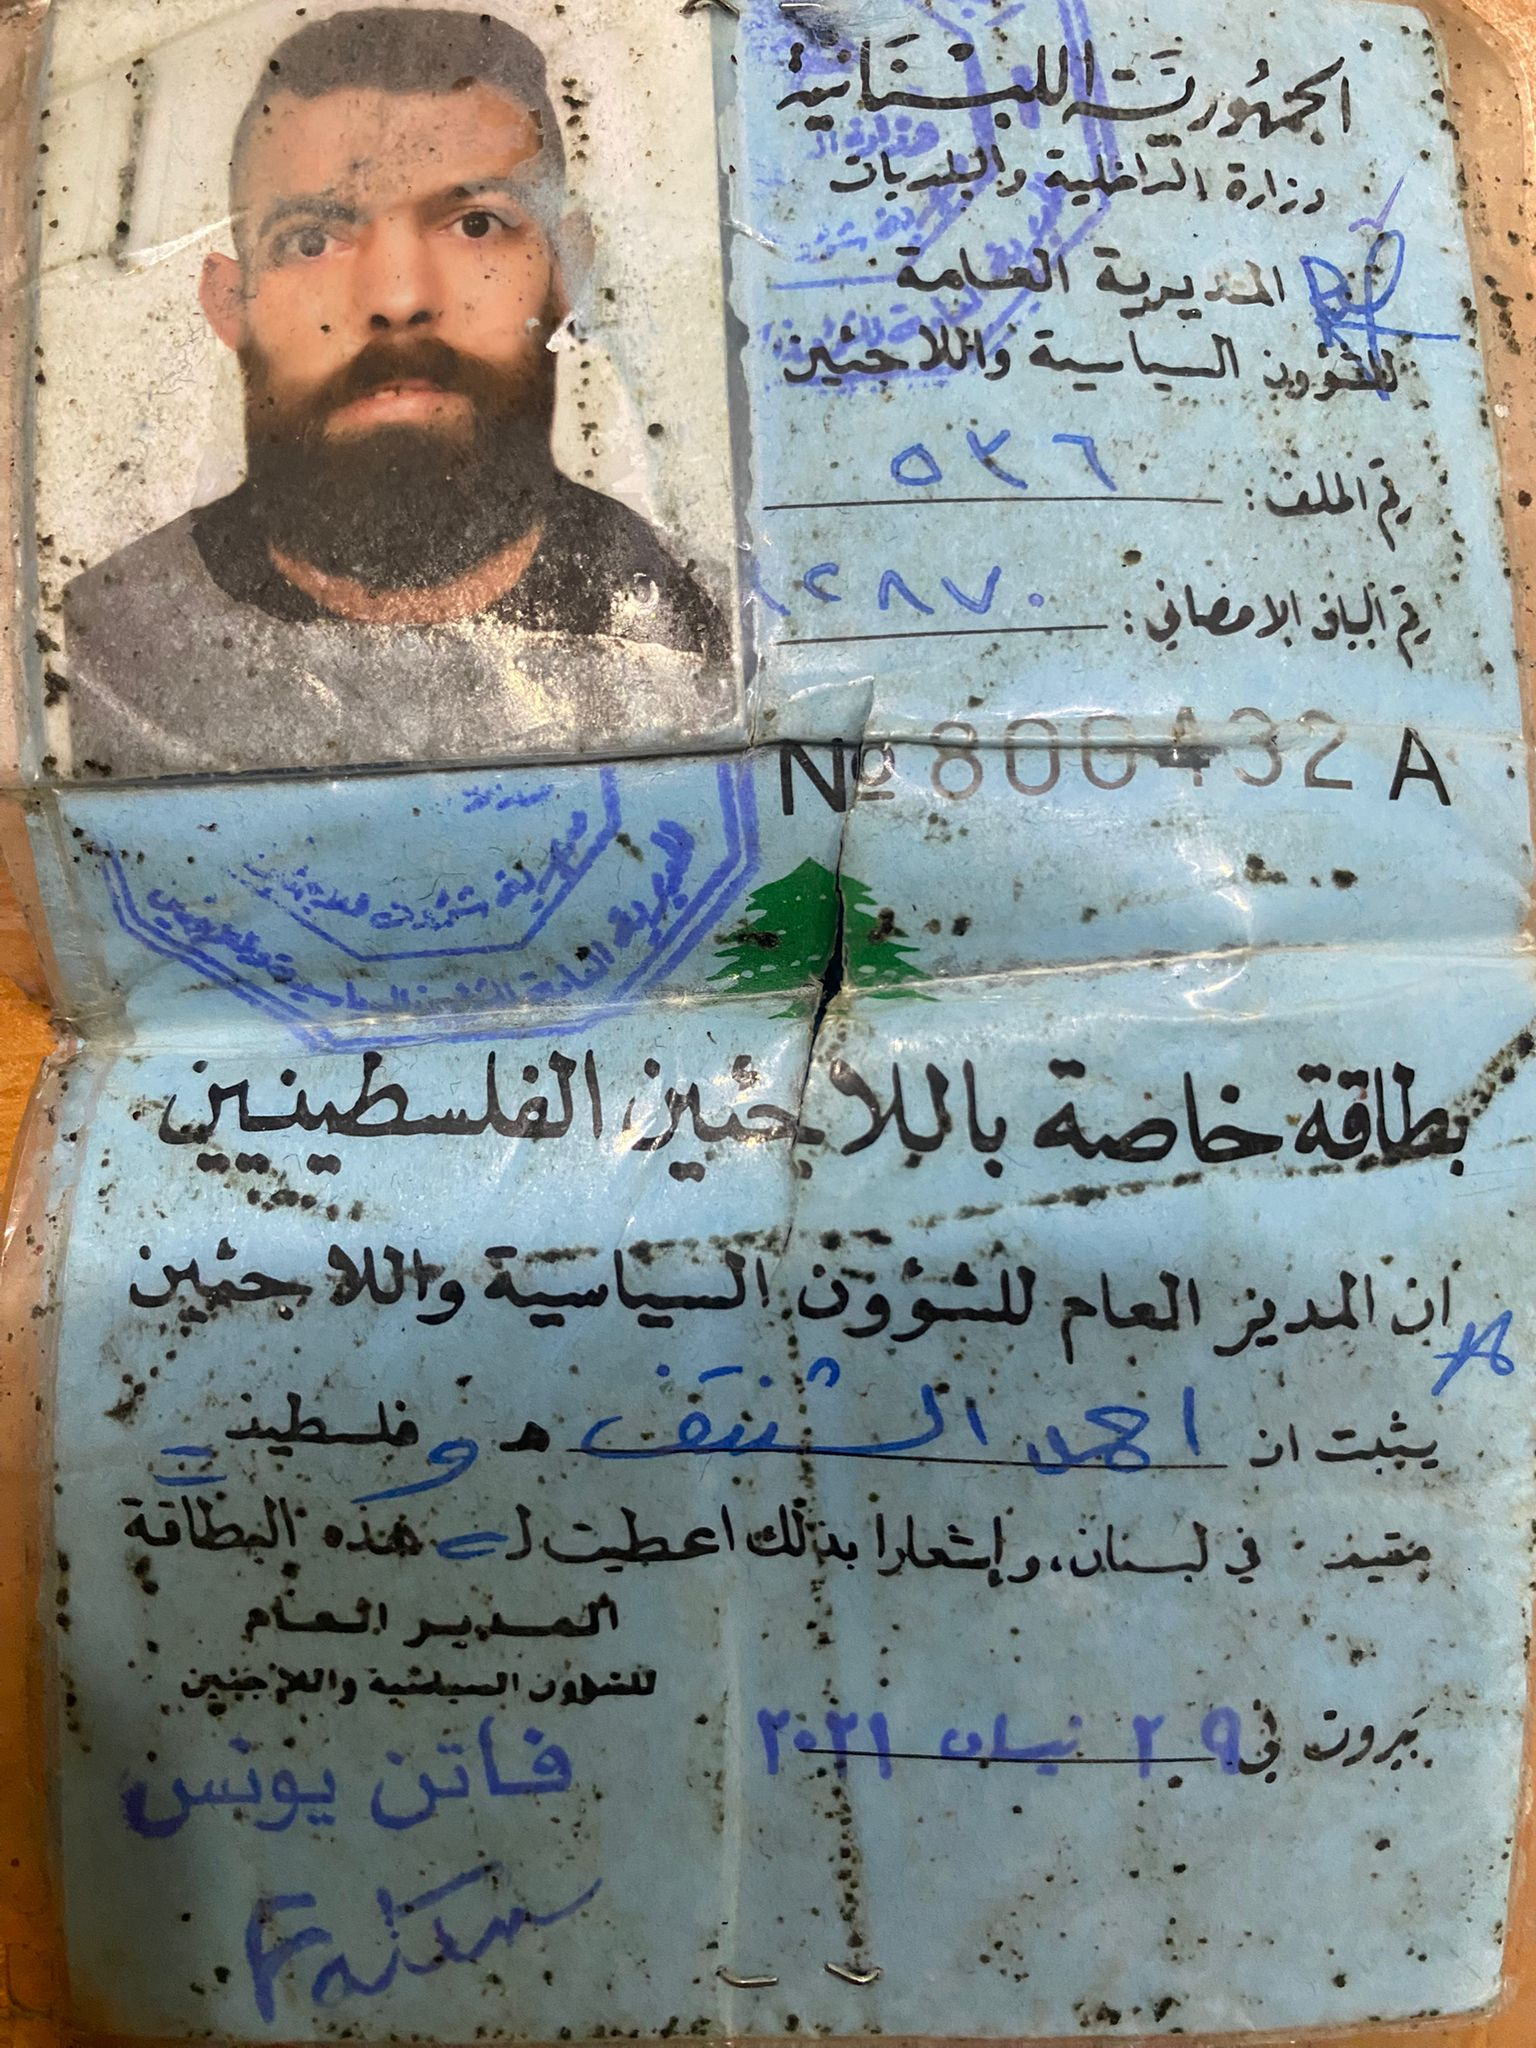 الجمهورية اللبنانية
وزارة الداخلية والبلديات
المديرية العامة
للشؤون السياسية واللاجئين
رقم الملف: ٥٣٦
رقم البيان الإحصائي: ١٢٨٧٠
No 800432 A
بطاقة خاصة باللاجئين الفلسطينيين
ان المدير العام للشؤون السياسية واللاجئين
يثبت ان احمد الشنتف هو فلسطيني
مقيد في لبنان، وإشعارا بذلك اعطيت له هذه البطاقة
المدير العام
للشؤون السياسية واللاجئين
بيروت في ٢٩ نيسان ٢٠٢١
فاتن يونس